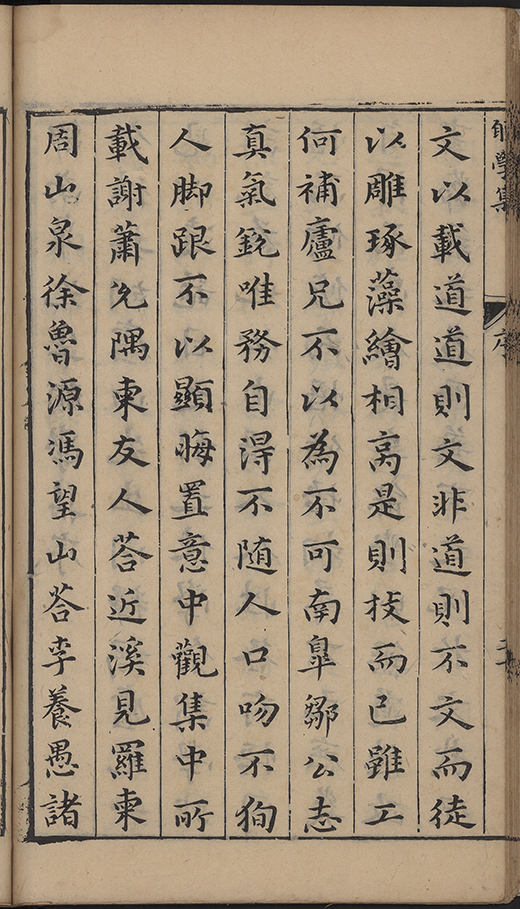 學集
序
文以載道道則文非道則不文而徒
以雕琢藻繪相高是則技而已雖工
何補廬兄不以為不可南臯鄒公志
真氣銳唯務自淂不随人口吻不狥
人脚跟不以顯晦置意中觀集中所
載謝蕭兊隅柬友人荅近溪見羅柬
周山泉徐魯源馮望山荅李養愚諸